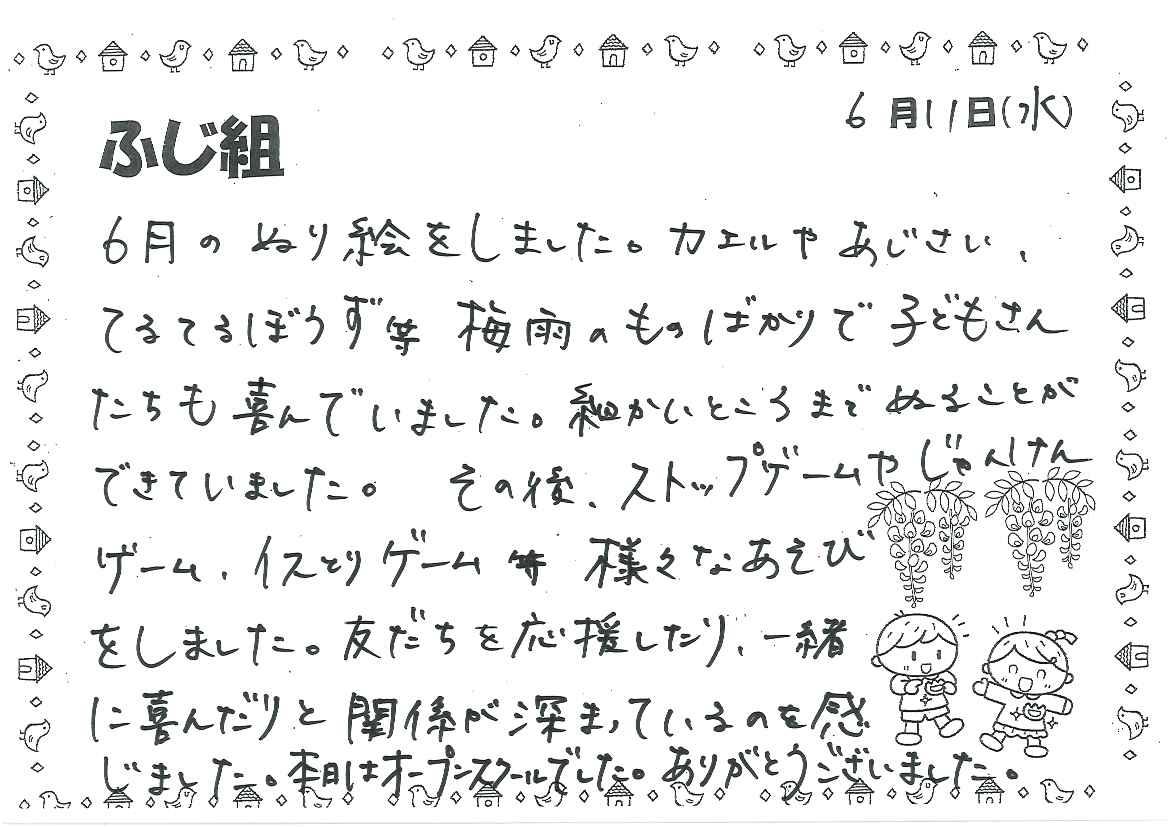 6月11日(水)
ふじ組
6月のぬり絵をしました。カエルやあじさい、
てるてるぼうず等 梅雨のものばかりで子どもさん
たちも喜んでいました。細かいところまでぬることが
できていました。 その後、ストップゲームやじゃんけん
ゲーム、イスとりゲーム等 様々なあそび
をしました。友だちを応援したり、一緒
に喜んだりと関係が深まっているのを感
じました。本日はオープンスクールでした。ありがとうございました。